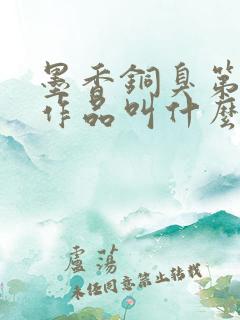 墨香銅臭第
作品叫什麼
盧蕩
未经同意禁止转载